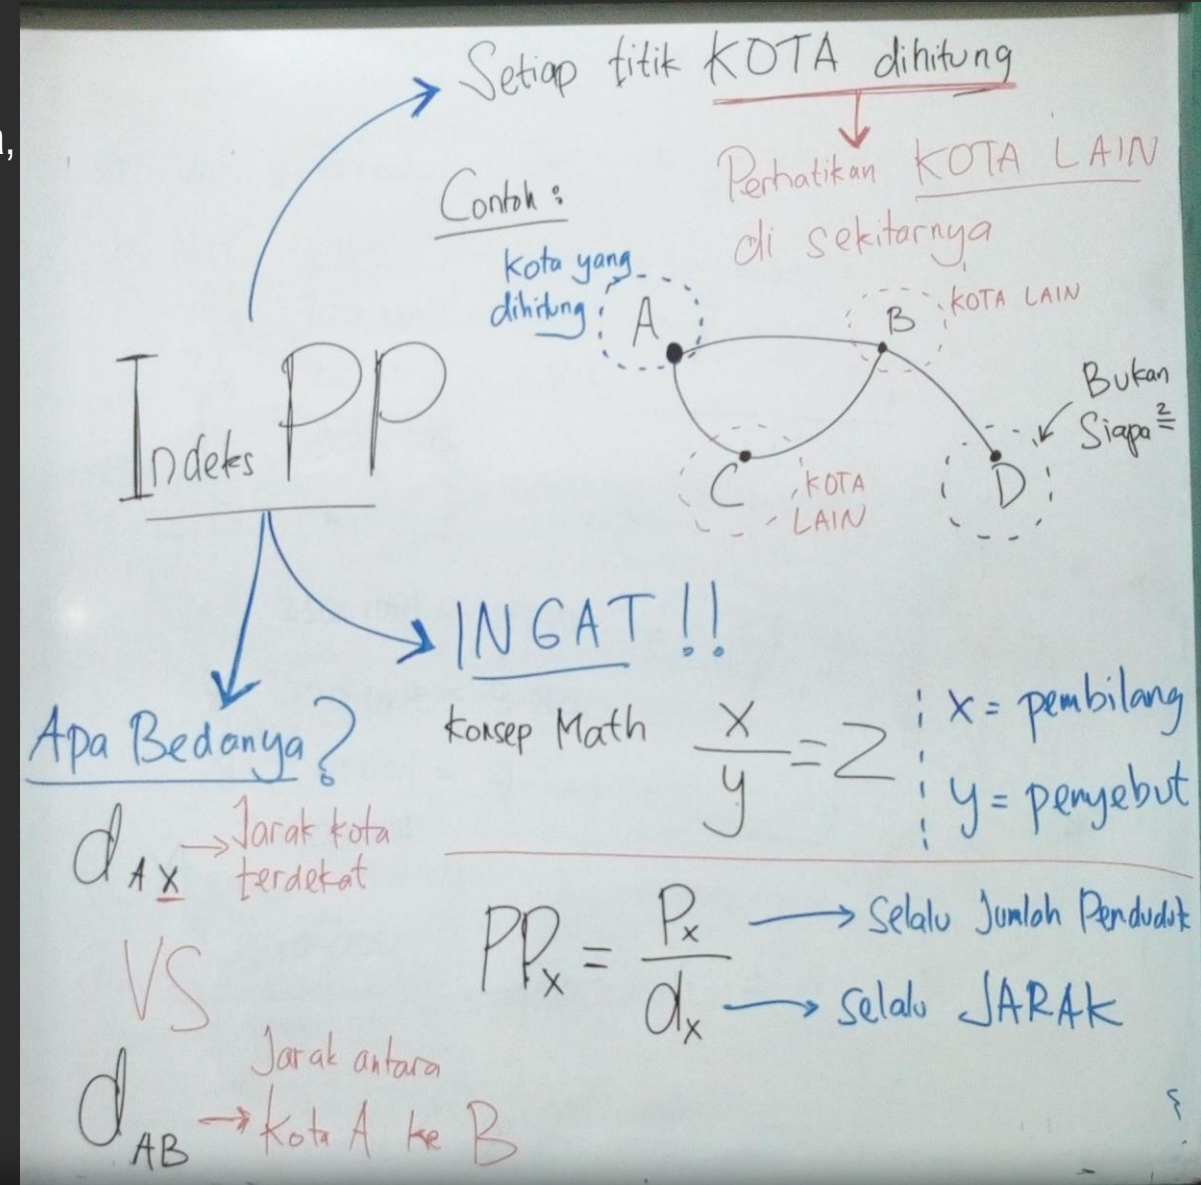 Setiap titik KOTA dihitung
Perhatikan KOTA LAIN
di sekitarnya
Contoh :
Kota yang
dihitung
A
B
KOTA LAIN
Bukan
Siapa²
C
KOTA
LAIN
D
Indeks PP
INGAT !!
Konsep Math
x
y
= 2
x = pembilang
y = penyebut
Apa Bedanya ?
dAX → Jarak kota
terdekat
VS
dAB → Jarak antara
Kota A ke B
PPx = Px
dx
→ Selalu Jumlah Penduduk
→ Selalu JARAK